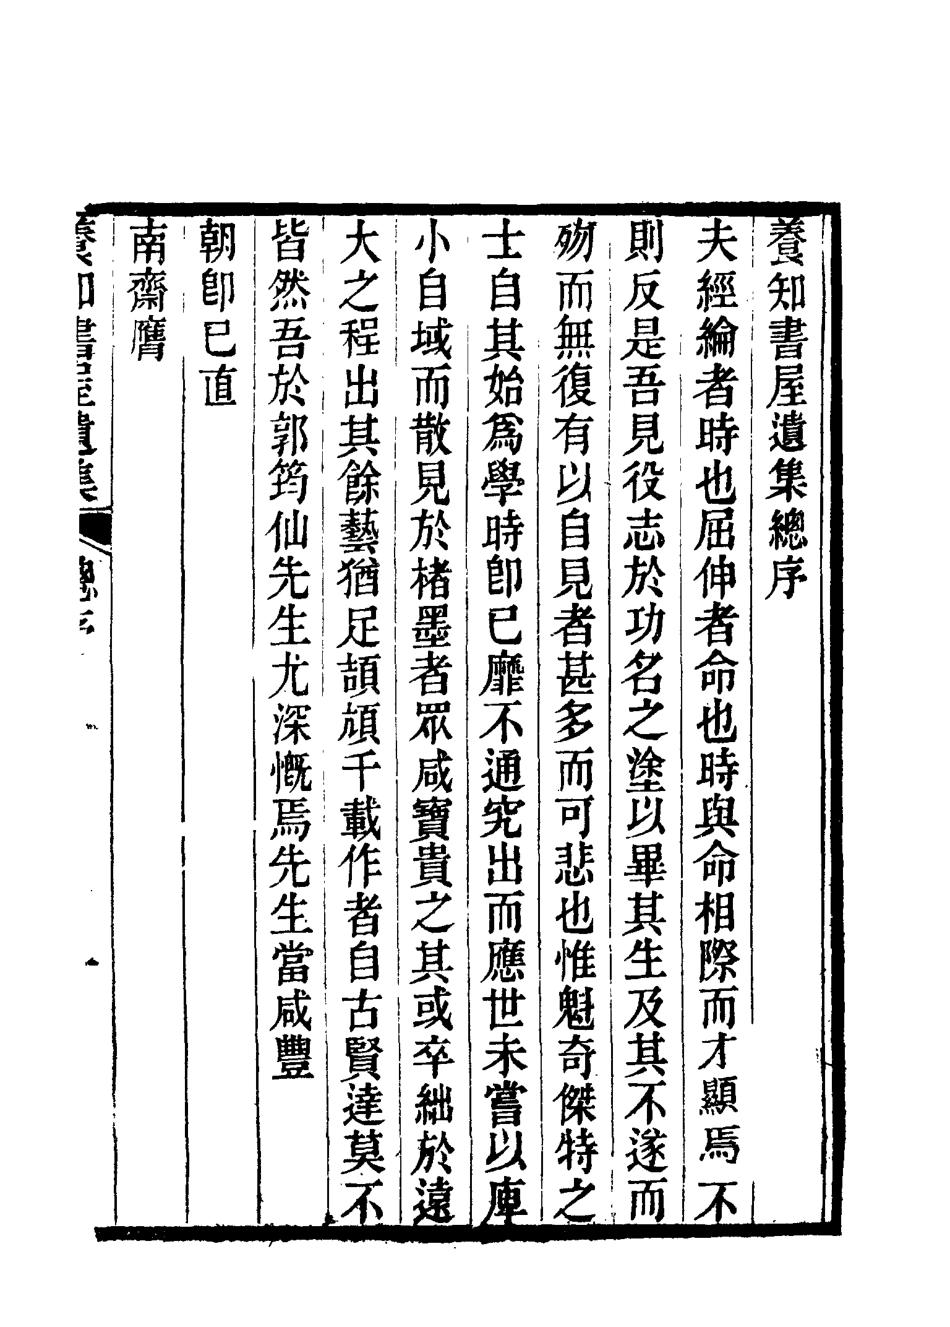 養知書屋遺集總序
夫經綸者時也屈伸者命也時與命相際而才顯焉不
則反是吾見役志於功名之塗以畢其生及其不遂而
歾而無復有以自見者甚多而可悲也惟魁奇傑特之
士自其始爲學時卽已靡不通究出而應世未嘗以庳
小自域而散見於楮墨者眾咸寶貴之其或卒絀於遠
大之程出其餘藝猶足頡頏千載作者自古賢達莫不
皆然吾於郭筠仙先生尤深慨焉先生當咸豐
朝卽已直
南齋膺
養知書屋遺集 總序